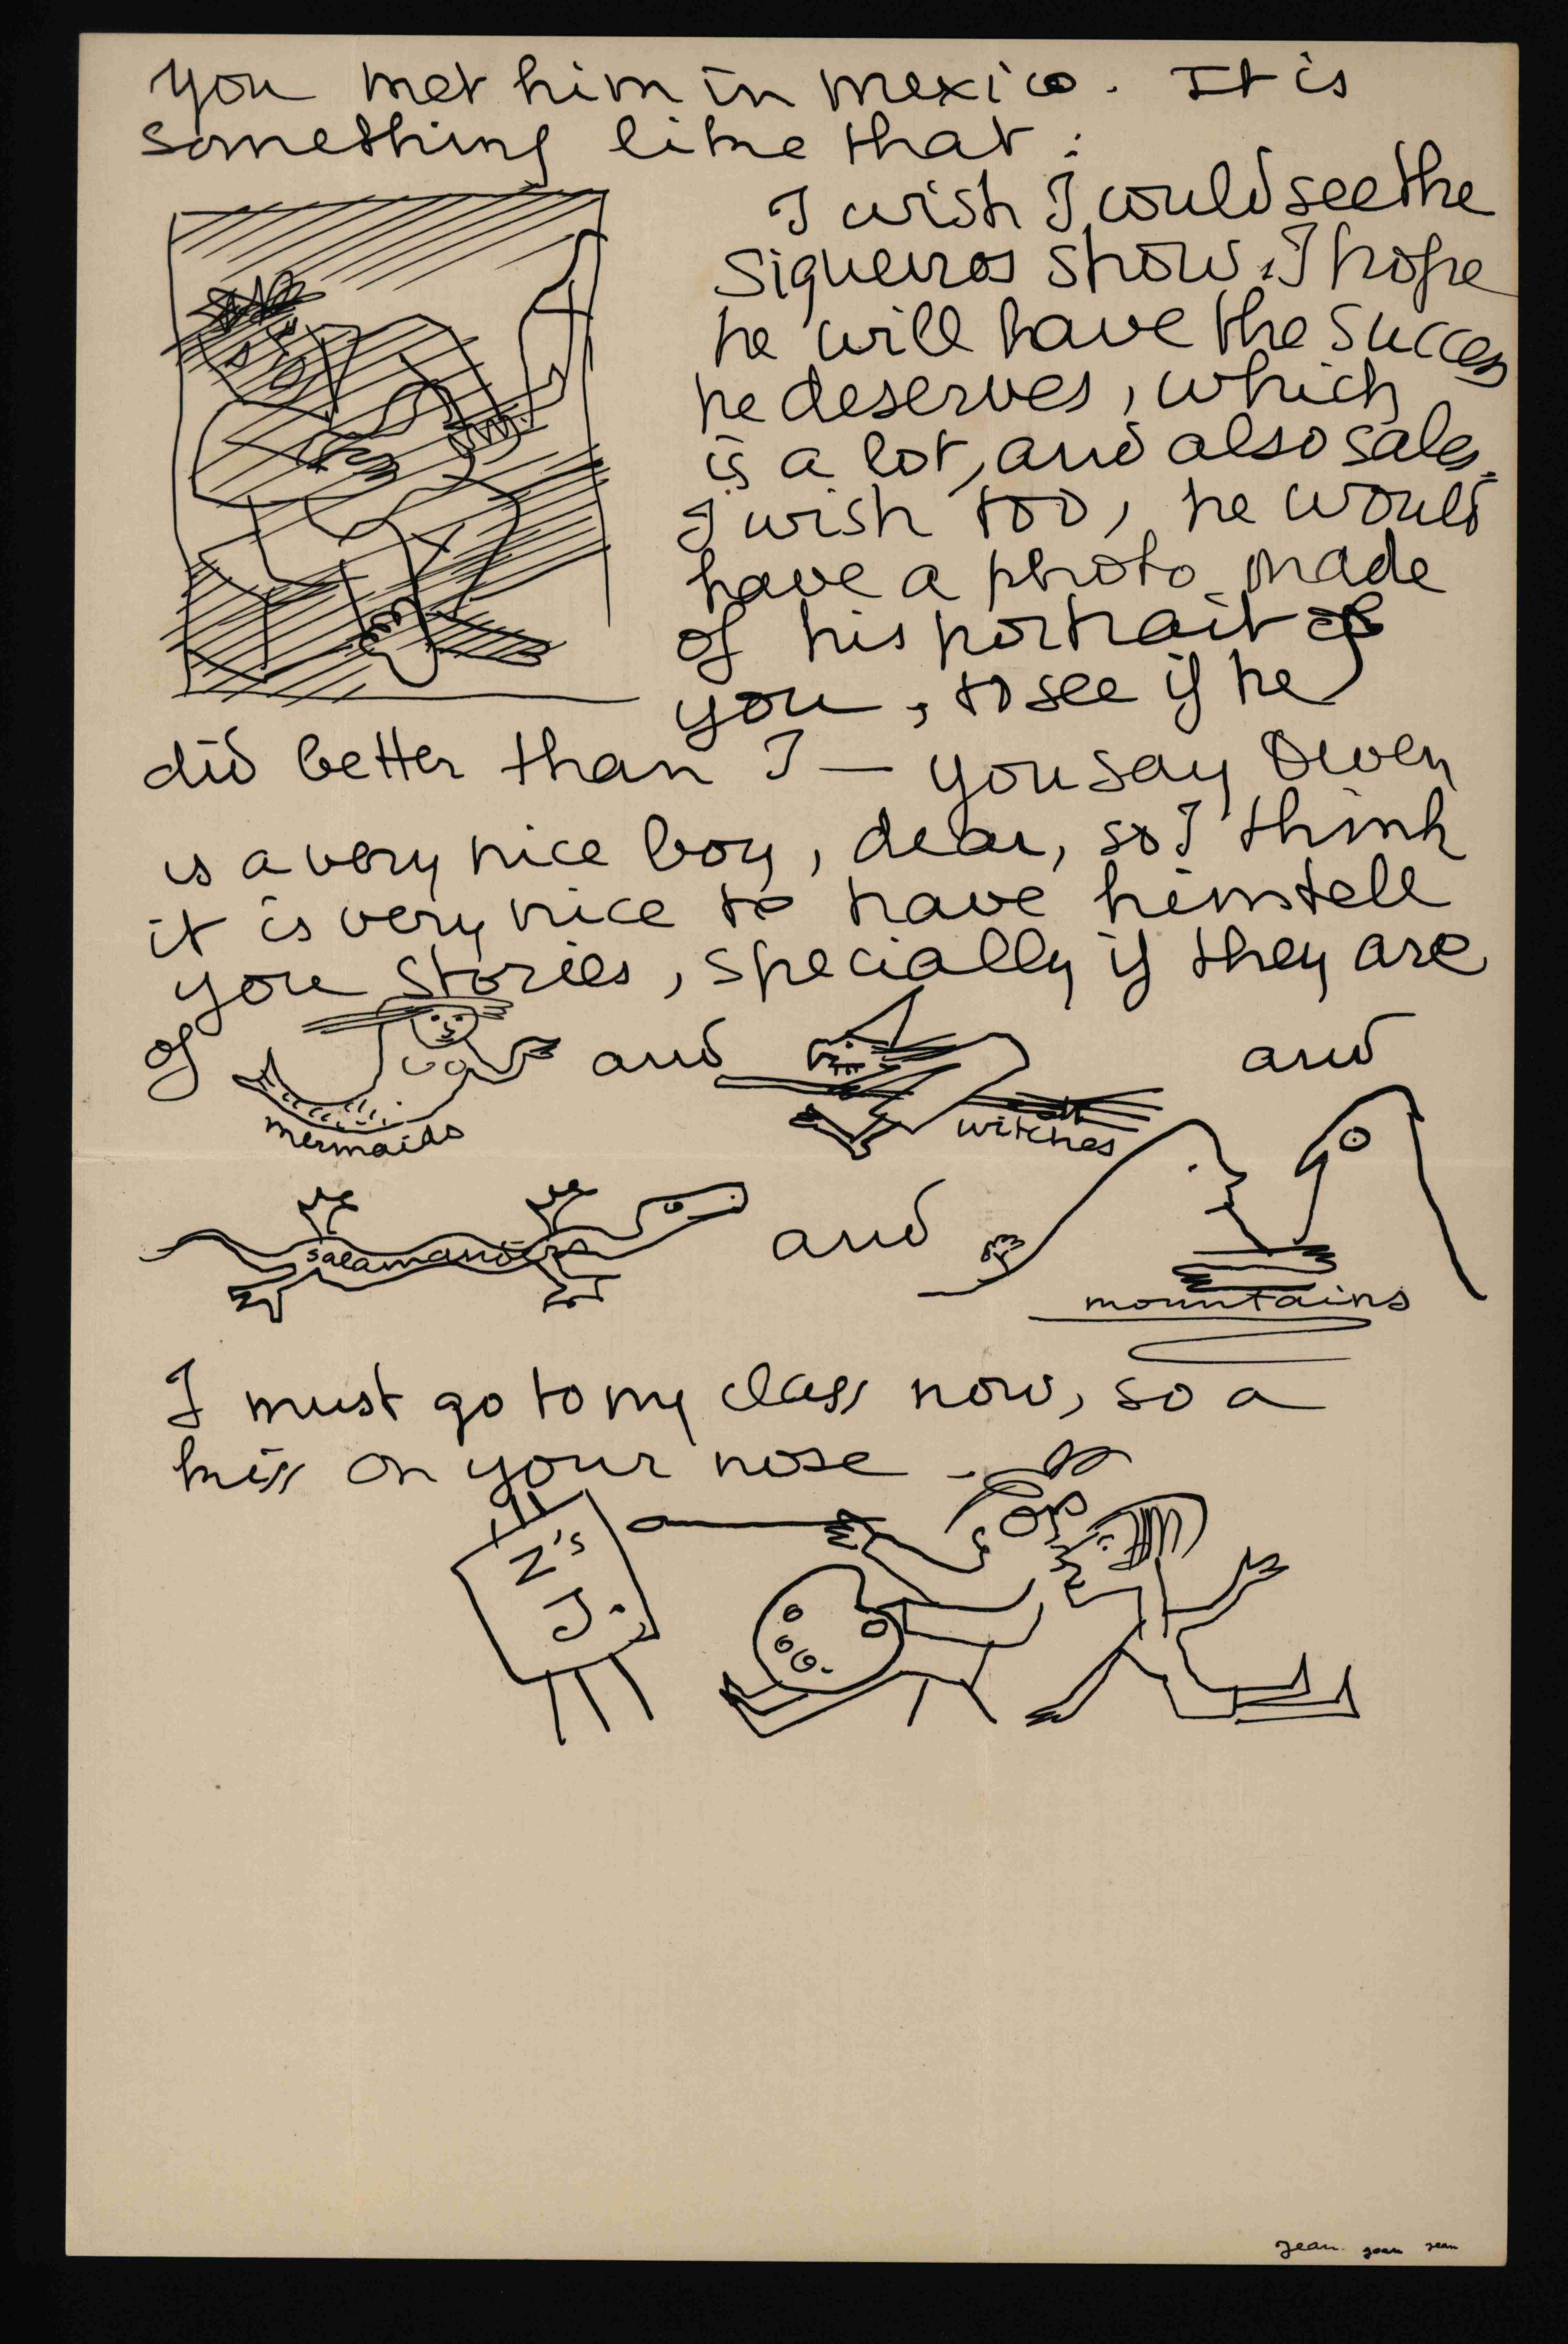 you met him in mexico. It is
something like that:
I wish I would see the
Siqueiros show. I hope
he will have the succes
he deserves, which
is a lot, and also sales.
I wish too, he would
have a photo made
of his portrait of
you, to see if he
did better than I — you say Owen
is a very nice boy, dear, so I think
it is very nice to have him tell
you stories, specially if they are
of and and
mermaids witches
salamand and
mountains
I must go to my class now, so a
kiss on your nose —
N's
J.
Jean. Jean Jean